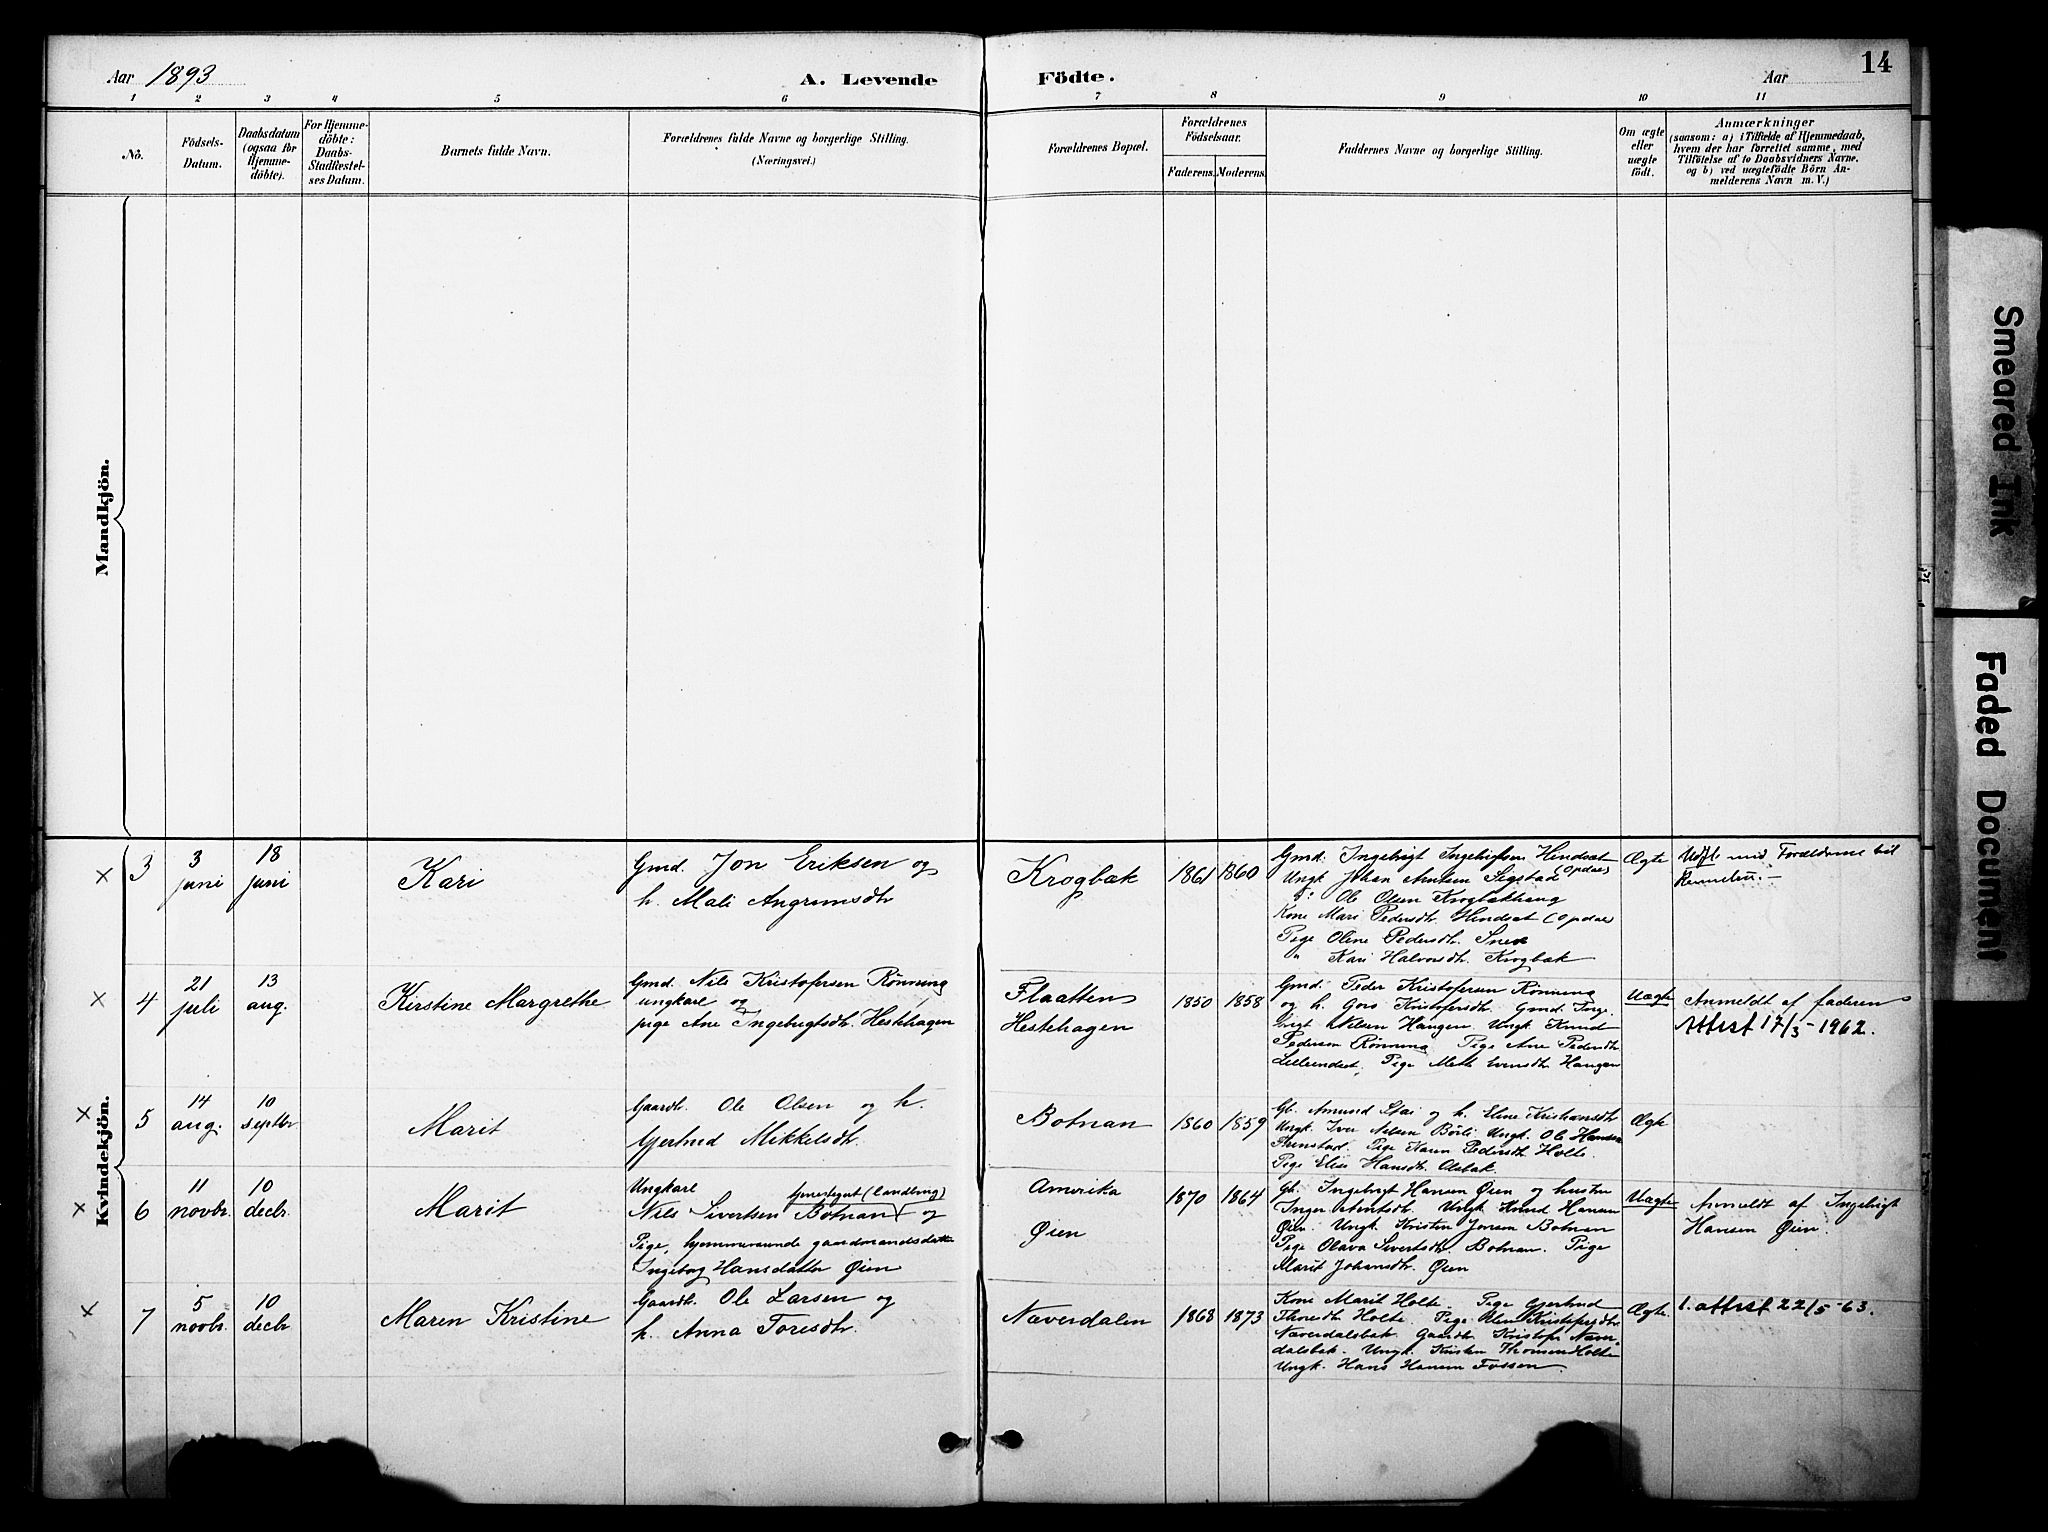 Aar 1893
A. Levende Födte.
Aar
14
1 2 3 4 5 6 7 8 9 10 11
No.
Födsels-
Datum.
Daabsdatum
(ogsaa for
Hjemme-
döbte).
For Hjemme-
döbte:
Daabs-
Stadfæstel-
ses Datum.
Barnets fulde Navn.
Forældrenes fulde Navne og borgerlige Stilling.
(Næringsvei.)
Forældrenes Bopæl.
Forældrenes
Födselsaar.
Faderens. Moderens.
Faddernes Navne og borgerlige Stilling.
Om ægte
eller
uægte
födt.
Anmærkninger
(saasom: a) i Tilfælde af Hjemmedaab,
hvem der har forrettet samme, med
Tilföielse af to Daabsvidners Navne,
og b) ved uægtefödte Börn An-
melderens Navn m. V.)
Mandkjön.
Kvindekjön.
× 3
3
juni
18
juni
Kari
Gmd. Jon Eriksen og
h. Mali Angrimsdtr
Krogbæk
1861 1860
Gmd. Ingebrigt Ingebrigtsen Hindset
Ungk Johan Arntsen Sigstad (Opdal)
Ole Olsen Krogbækhaug
Kone Mari Pedersdtr. Hindset (Opdal)
Pige Oline Pedersdtr.
" Kari Halvorsdtr. Krogbæk
Ægte
Udfl. med Forældrene til
Rennebu.-
× 4
21
juli
13
aug.
Kirstine Margrethe
Gmd. Nils Kristofersen Rønning
ungkarl og
pige Ane Ingebrigtsdtr. Hestehagen
Flaatten
Hestehagen
1850 1858
Gmd. Peder Kristofersen Rønning
og h. Goro Kristofersdtr. Gmd. Inge-
brigt Nilsen Haugen. Ungk Knud
Pederson Rønning Pige Ane Pedersdtr
Pige Mette Haugen
Uægte
Anmeldt af faderen
Attest 17/3-1962.
× 5
14
aug.
10
septbr.
Marit
Gaardb. Ole Olsen og h.
Gjertrud Mikkelsdtr.
Botnan
1860 1859
Gb. Amund Stai og h. Eline Kristiansdtr
Ungk. Iver Nilsen Börli Ungk. Ole Hansen
Grinstad. Pige Karen Pedersdtr. Holte.
Pige Elise Hansdtr. Olsbak.
Ægte
× 6
11
novbr.
10
decbr.
Marit
Ungkarl tjenestegut (landbrug)
Nils Sivertsen Botnan og
Pige, hjemmeværende gaardmandsdatter
Ingeborg Hansdatter Øien
Amerika
Øien
1870 1864
Gb. Ingebrigt Hansen Øien og hustru
Inger Arntsdtr. Ungk Knud Hansen
Øien. Ungk. Kristen Jonsen Botnan
Pige Olava Sivertsdtr. Botnan. Pige
Marit Johansdtr. Øien
Uægte
Anmeldt af Ingebrigt
Hansen Øien.
× 7
5
novbr.
10
decbr
Maren Kristine
Gaardb. Ole Larsen og
h. Anna Toresdtr.
Næverdalen
1868 1873
Kone Marit Holte. Pige Gjertrud
Thoresdtr Holte. Pige Kristofersdtr.
Næverdalsbak. Gaardb. Kristofer Næver-
dalsbak. Ungk. Kristen Thomsen Holte
Ungk. Hans Hansen Fossen.
Ægte.
1. attest 22/5-63.
Smeared Ink
Faded Document